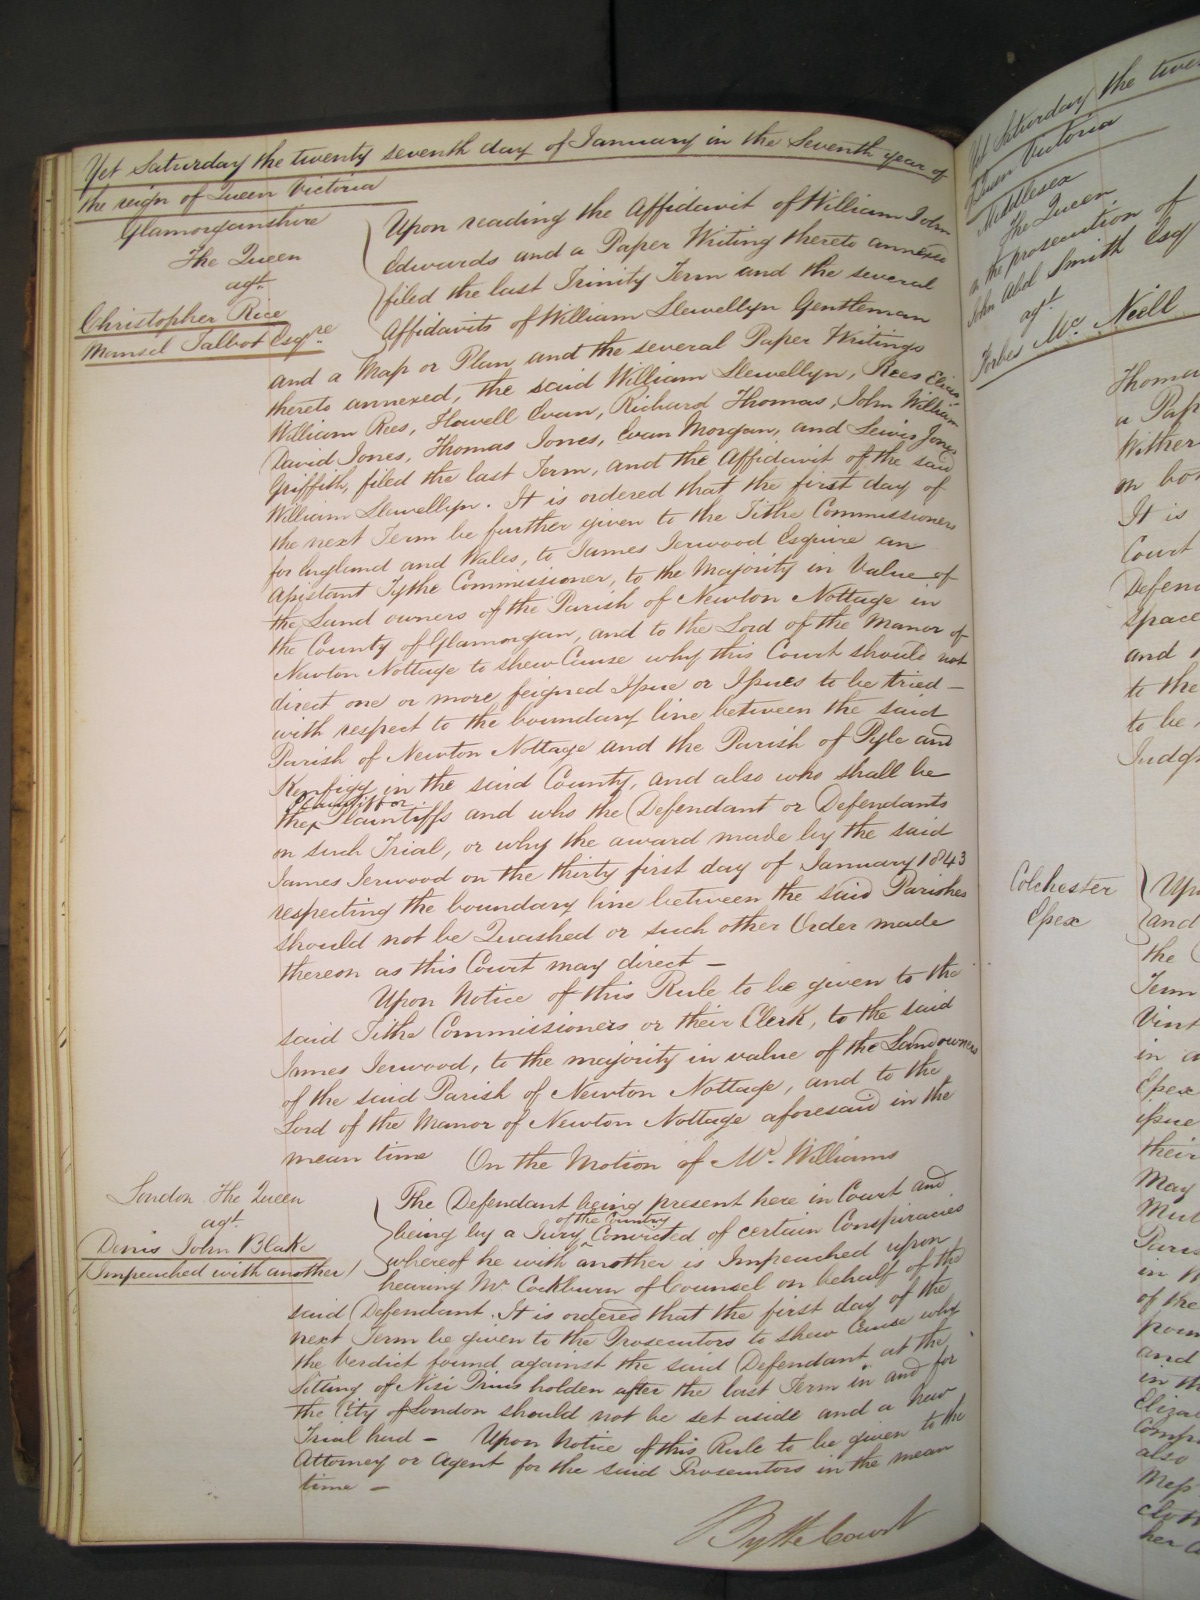 Yet Saturday the twenty seventh day of January in the Seventh year of
the reign of Queen Victoria
Glamorganshire
The Queen
agt.
Christopher Rice
Mansel Talbot Esqre
Upon reading the Affidavit of William John
Edwards and a Paper Writing thereto annexed
filed the last Trinity Term and the several
Affidavits of William Llewellyn Gentleman
and a Map or Plan and the several Paper Writings
thereto annexed, the said William Llewellyn, Rees
William Rees, Howell Evan, Richard Thomas, John William
David Jones, Thomas Jones, Evan Morgan, and Lewis Jones
Griffith, filed the last Term, and the Affidavit of the said
William Llewellyn. It is ordered that the first day of
the next Term be further given to the Tithe Commissioners
for England and Wales, to James Jerwood Esquire an
Assistant Tythe Commissioner, to the Majority in Value of
the Land owners of the Parish of Newton Nottage in
the County of Glamorgan, and to the Lord of the Manor of
Newton Nottage to shew Cause why this Court should not
direct one or more feigned Issue or Issues to be tried –
with respect to the boundary line between the said
Parish of Newton Nottage and the Parish of Pyle and
Kenfigg in the said County, and also who shall be
Plaintiff or
the Plaintiffs and who the Defendant or Defendants
on such Trial, or why the award made by the said
James Jerwood on the thirty first day of January 1843
respecting the boundary line between the said Parishes
should not be Quashed or such other Order made
thereon as this Court may direct –
Upon Notice of this Rule to be given to the
said Tithe Commissioners or their Clerk, to the said
James Jerwood, to the majority in value of the Landowners
of the said Parish of Newton Nottage, and to the
Lord of the Manor of Newton Nottage aforesaid in the
mean time On the Motion of Mr. Williams
London The Queen
agt.
Denis John Blake
(Impeached with another)
The Defendant being present here in Court and
of the Country
being by a Jury Convicted of certain Conspiracies
whereof he with another is Impeached upon
hearing Mr Cockburn of Counsel on behalf of the
said Defendant. It is ordered that the first day of the
next Term be given to the Prosecutors to shew Cause why
the Verdict found against the said Defendant at the
Sitting of Nisi Prius holden after the last Term in and for
the City of London should not be set aside and a New
Trial had – Upon Notice of this Rule to be given to the
Attorney or Agent for the said Prosecutors in the mean
time –
By the Court
Yet Saturday the
Queen Victoria
Middlesex
The Queen
on the prosecution of
John Abel Smith Esq
agt
Forbes Mc Neill
a Pap
on
It is
Court
Defend
space
and
to the
to be
Judg
Colchester
Essex
Upo
and
the
Term
in
Essex
issue
their
May
in
of the
and
in th
also
her